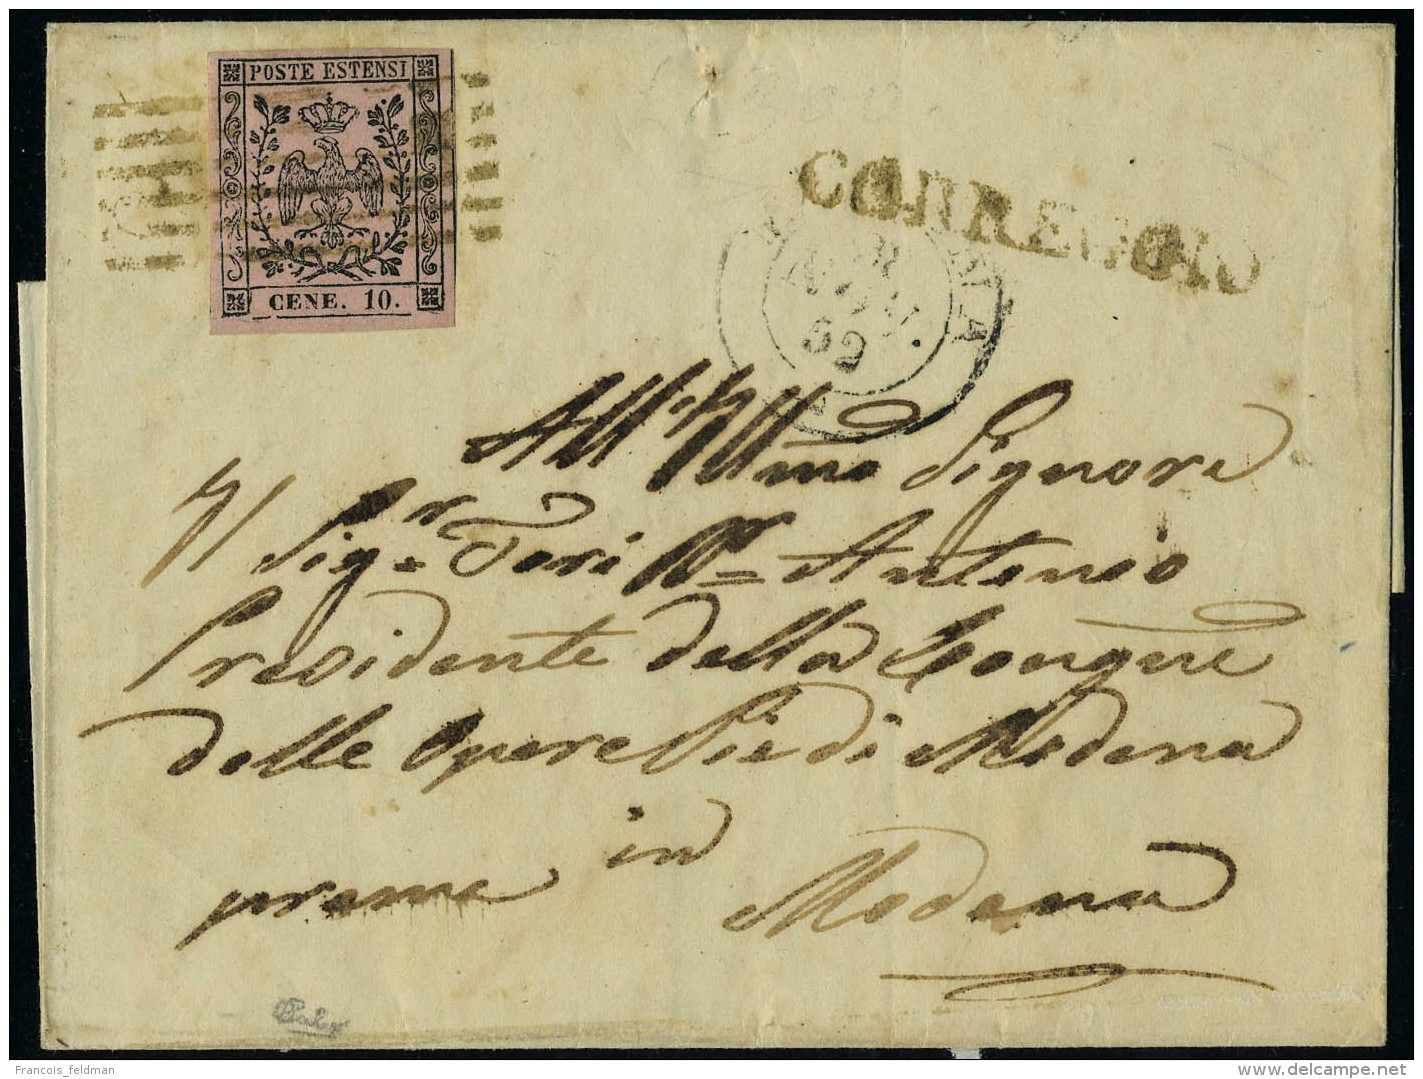 POSTE ESTENSI
CENE. 10.
CORREGGIO
62
All' Illmo Signore
Sigr Tori Antonio
Presidente della Congne
delle Opere Pie di Modena
preme in
Modena
Francois_feldman
delcampe.net